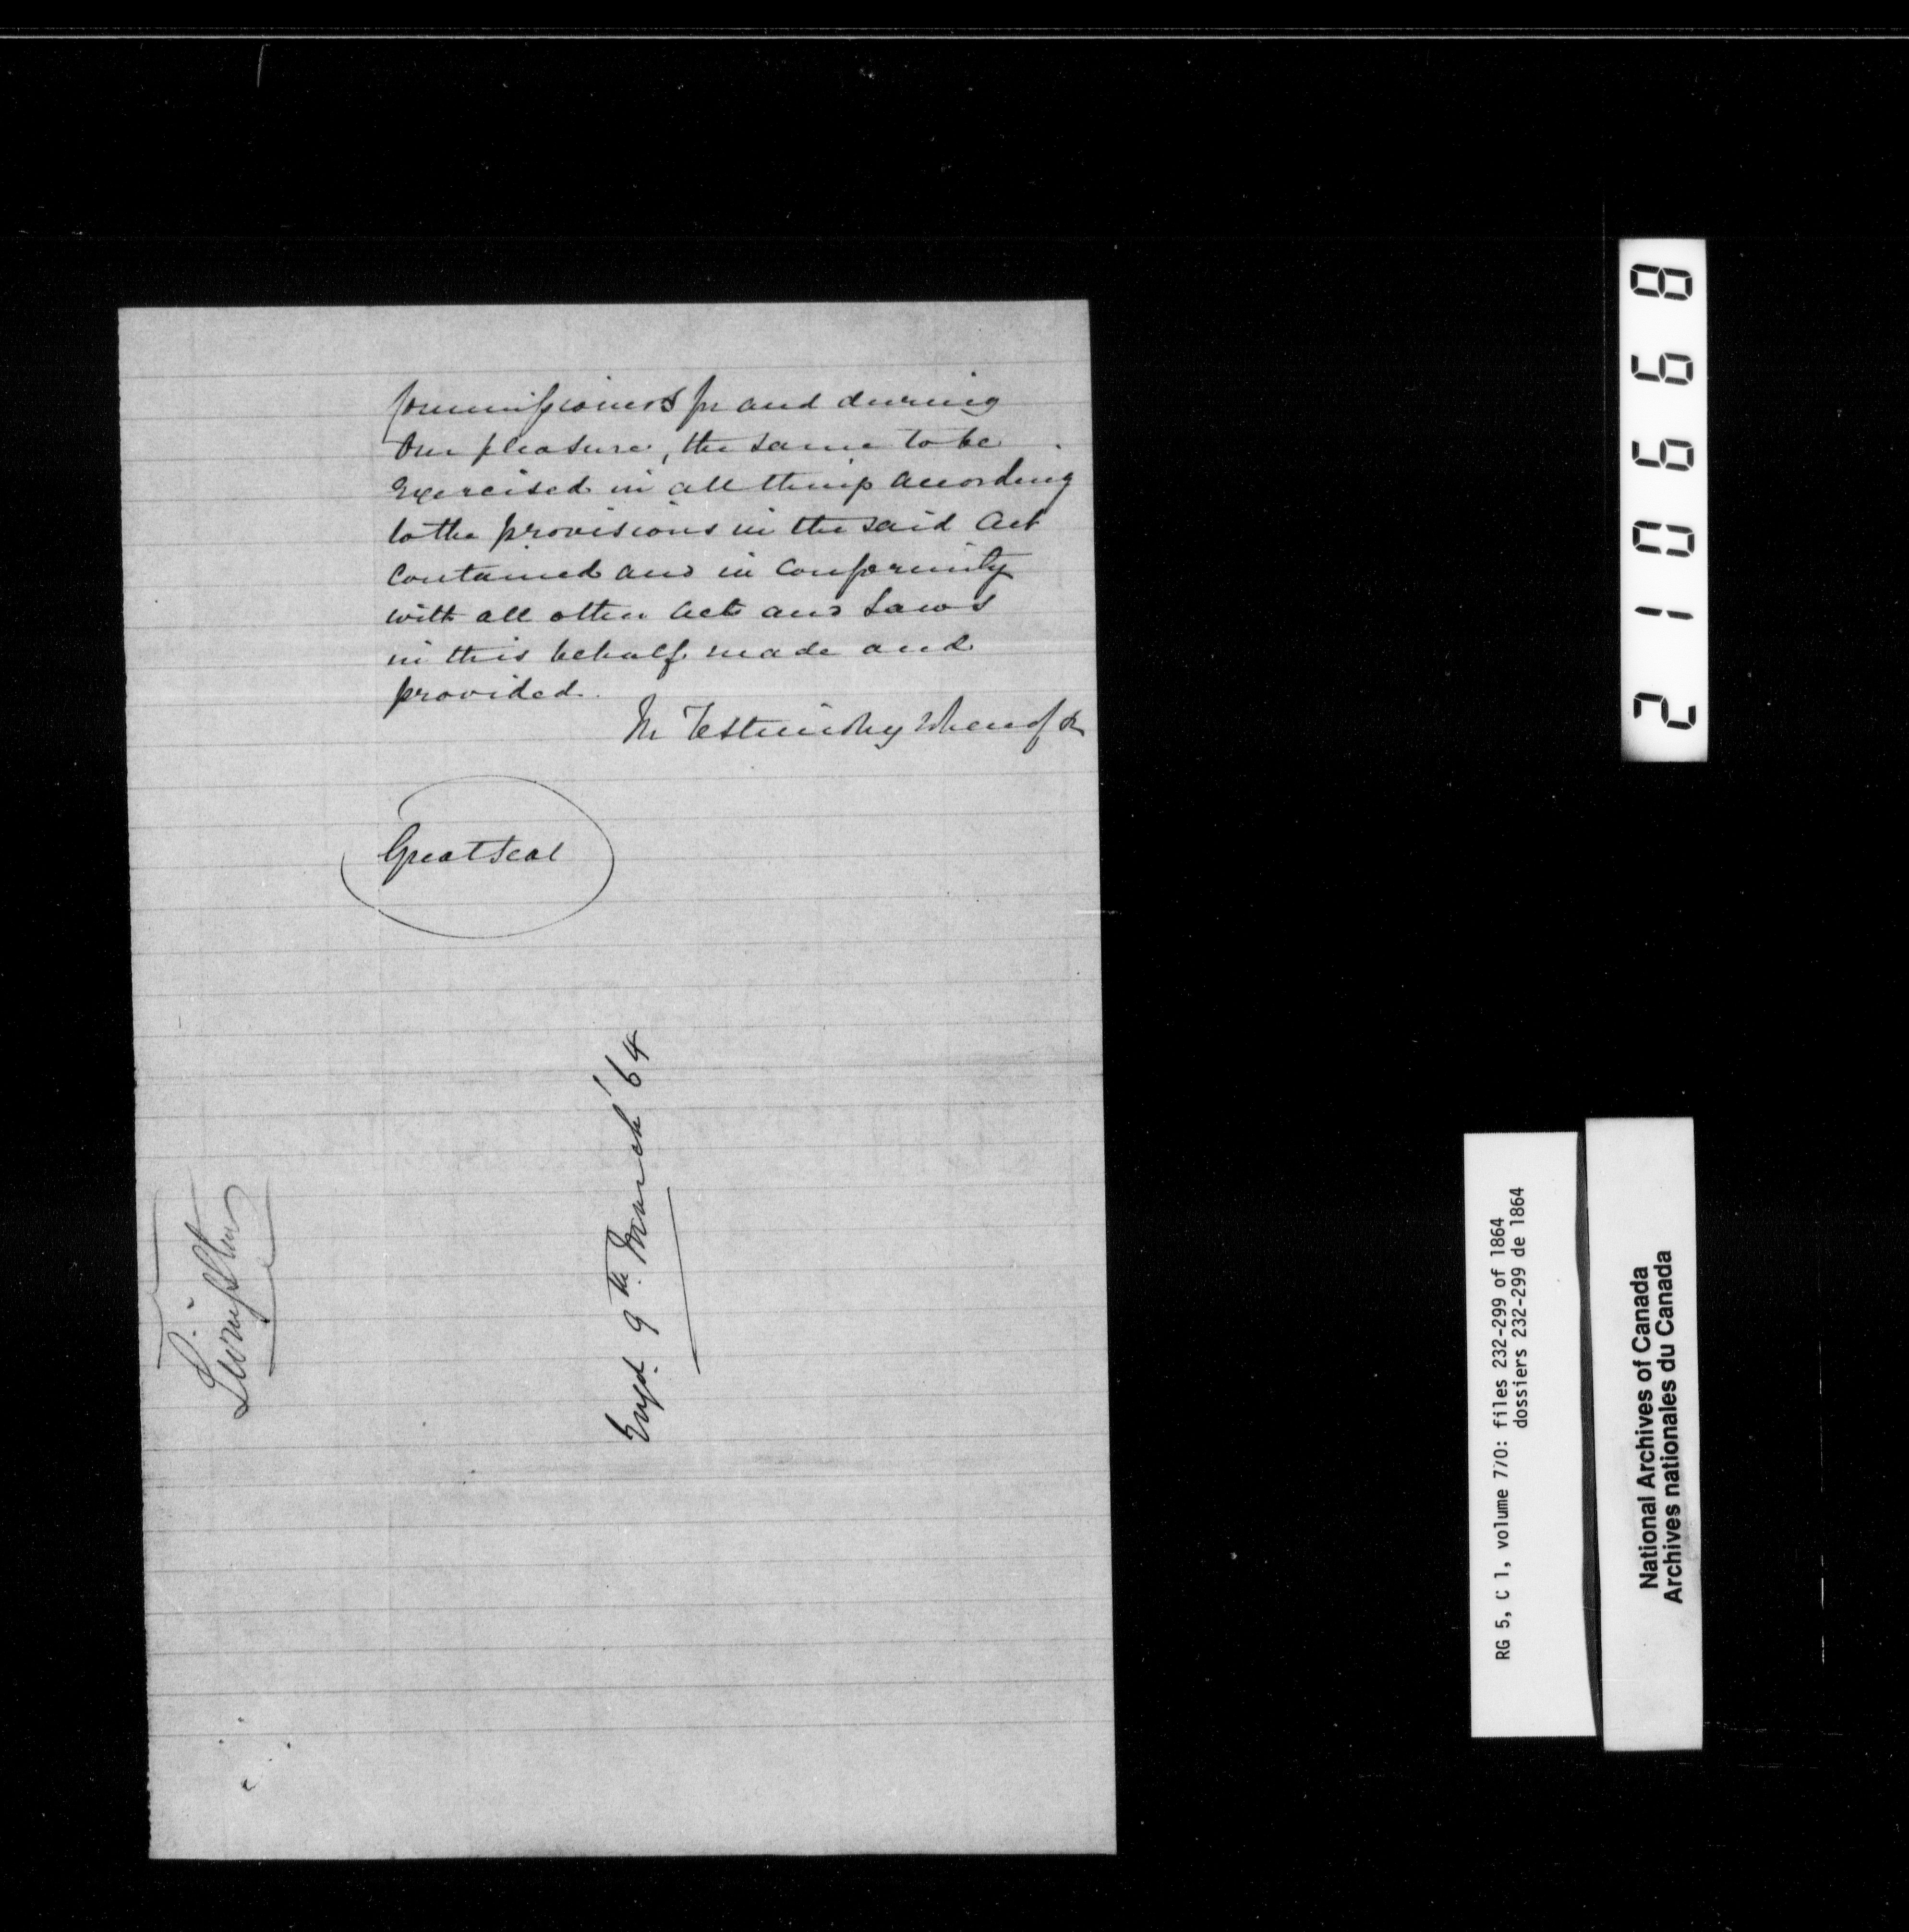 Commissioners for and during
Our pleasure, the same to be
Exercised in all things according
to the provisions in the said Act
contained and in conformity
with all other Acts and Laws
in this behalf made and
provided.
In Testimony Whereof &c
Great Seal
Engd. 9th. March '64
Livingston
210668
RG 5, C 1, volume 770: files 232-299 of 1864
dossiers 232-299 de 1864
National Archives of Canada
Archives nationales du Canada